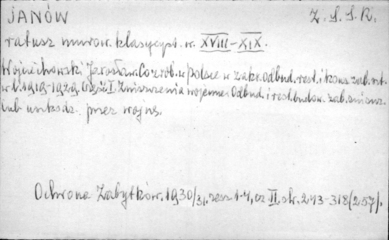 JANÓW Z.S.S.R.
ratusz murow. klasycyst. w. XVIII-XIX.
Wojciechowski Jarosław. Co zrob. w Polsce w zakr. odbud. rest. i kons. zab. szt.
w l. 1919-1929. Część I. Zniszczenia wojenne. Odbud. i rest. budow. zab. zniszcz.
lub uszkodz. przez wojnę.
Ochrona Zabytków. 1930/31, zesz. 1-4, cz II, str. 243-318 (257).